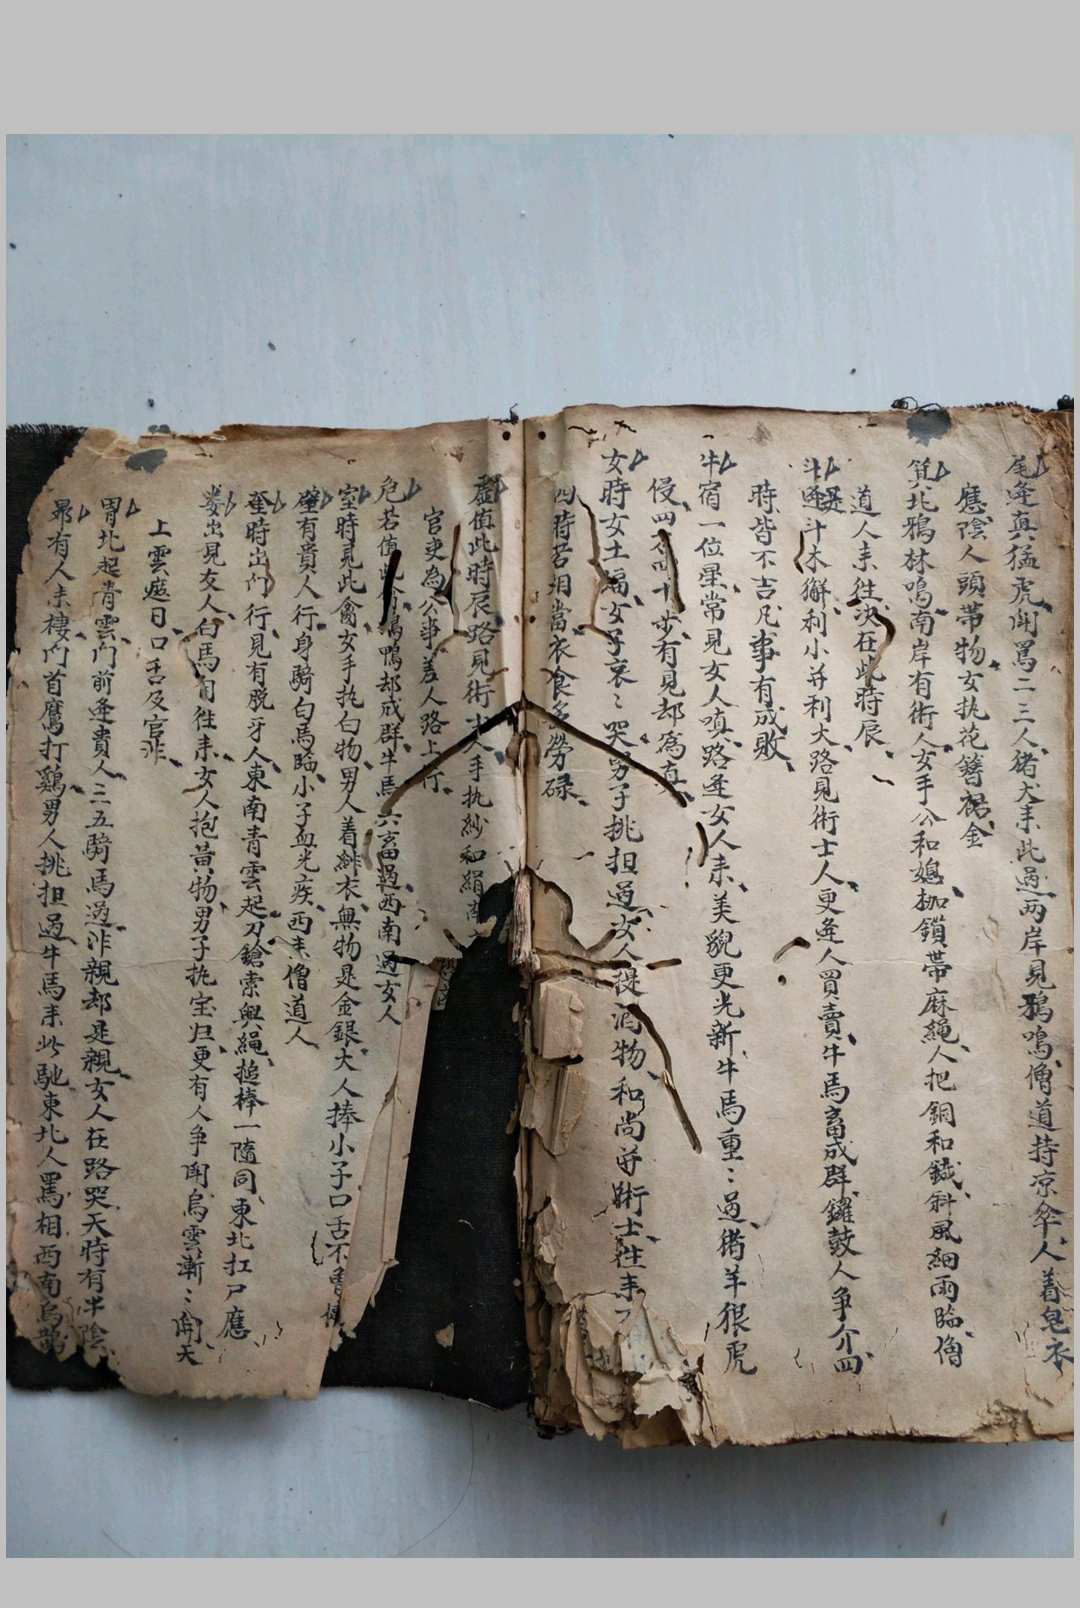 尾逢真猛虎闹罵二三人猪犬来此過两岸見鴉鳴僧道持凉傘人着皂衣
應陰人頭帶物女执花簪裙金
箕北鴉林鳴南岸有術人女手公和媳枷鎖帶麻繩人把銅和鐵斜風細雨臨僧
道人来往决在此時辰
斗逢斗木獬利小并利大路見術士人更逢人買賣牛馬畜成群鑼鼓人争介四
時皆不吉凡事有成敗
牛宿一位星常見女人嗔路逢女人来美貌更光新牛馬重重過猪羊狠虎
侵四十步有見却為真
女時女土蝠女子哀哀哭男子挑担過女人提酒物和尚并術士往来
四時若相當衣食多勞碌
虚值此時辰路見術士人手执紗和絹
官吏為公事差人路上行
危若值此鴨却成群牛馬六畜過西南過女人
室時見此禽女手执白物男人着緋衣無物是金銀大人捧小子口舌不
壁有貴人行身騎白馬臨小子血光疾西来僧道人
奎時出门行見有脱牙人東南青雲起刀鎗索與繩搥棒一隨同東北扛尸應
娄出見友人白馬自往来女人抱黄物男子执宝归更有人争闹烏雲漸漸開天
上雲遮日口舌及官非
胃北起青雲门前逢貴人三五騎馬過非親却是親女人在路哭天時有半陰
昴有人来棲门首鷹打鷄男人挑担過牛馬来此馳東北人罵相西南烏鵲